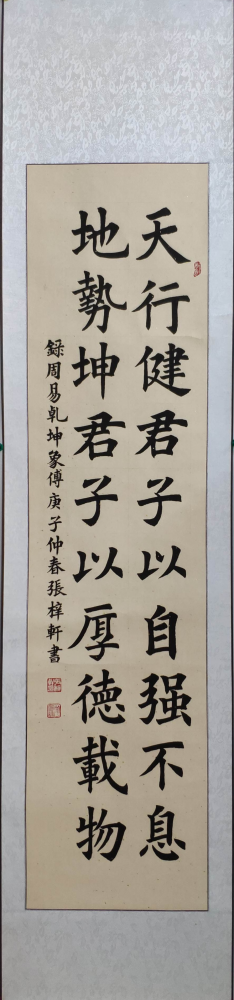 天行健君子以自强不息
地勢坤君子以厚德載物
録周易乾坤象傳庚子仲春張梓軒書